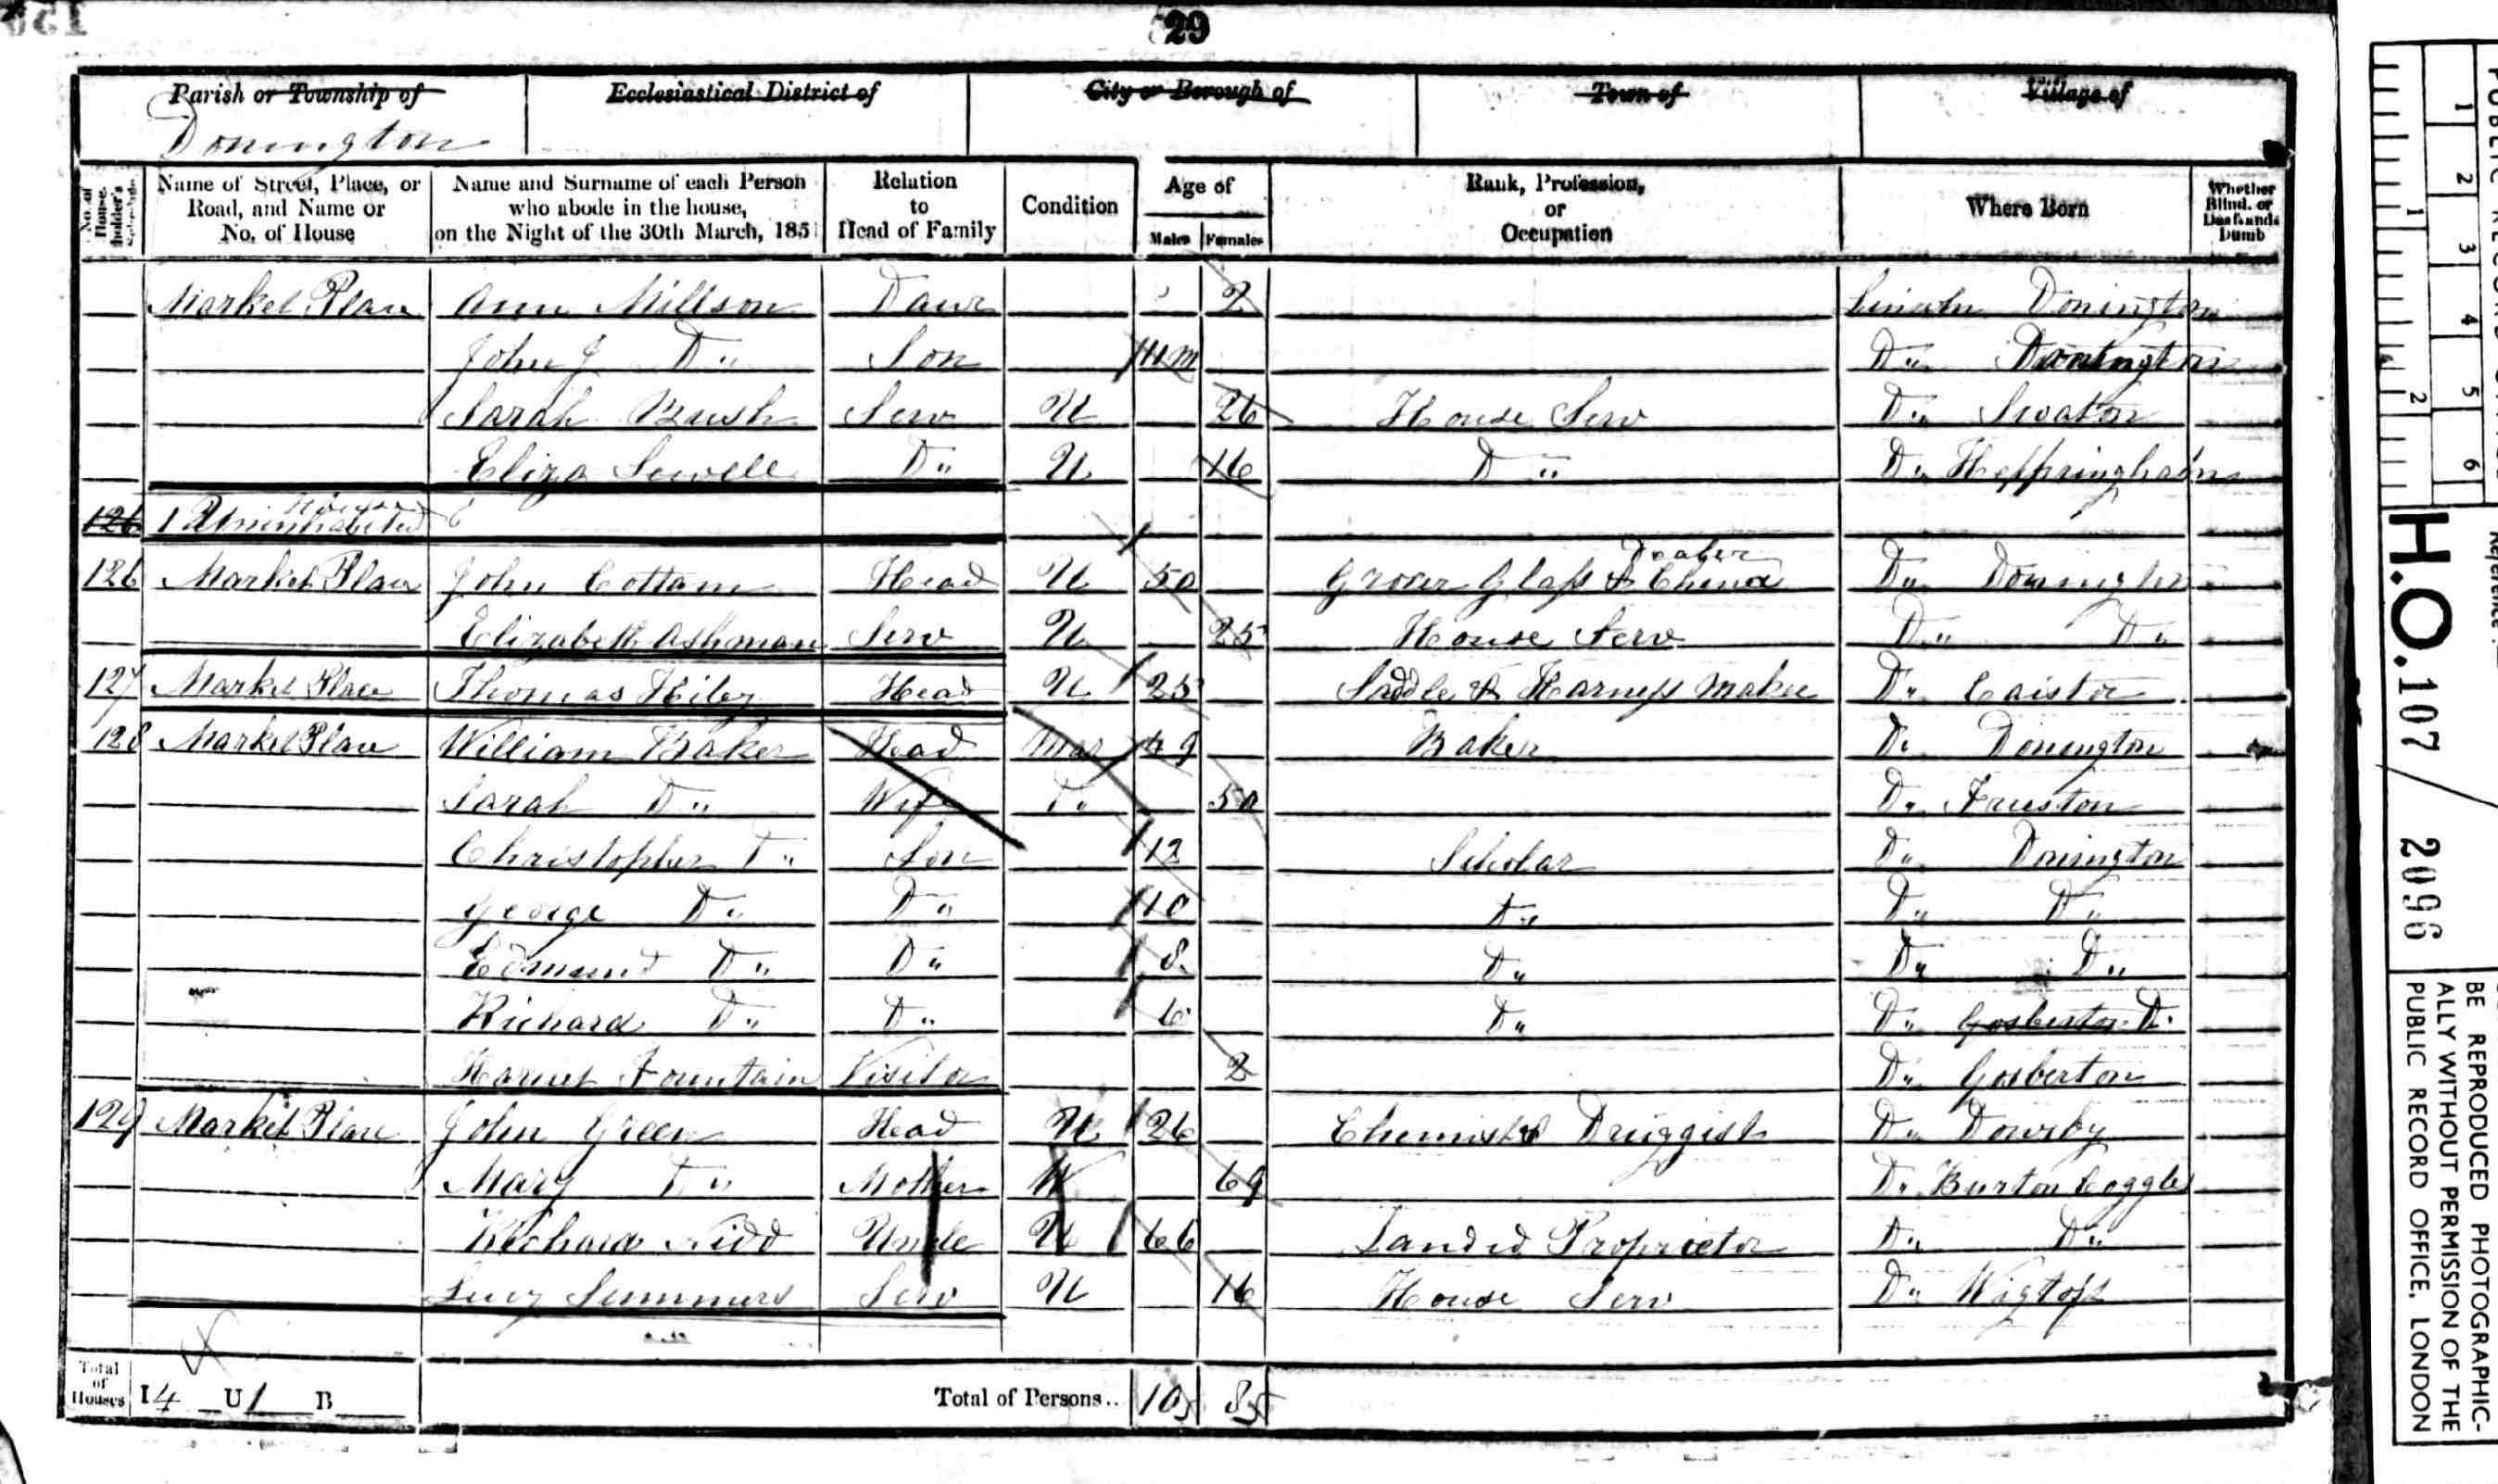 29
Parish or Township of Ecclesiastical District of City or Borough of Town of Village of
Donington
No. of House-holder's Name of Street, Place, or Road, and Name or No. of House Name and Surname of each Person who abode in the house, on the Night of the 30th March, 1851 Relation to Head of Family Condition Age of Males Females Rank, Profession, or Occupation Where Born Whether Blind, or Deaf and Dumb
Market Place Ann Millson Daur 2 Lincoln Donington
John J Do Son 11 m Do Donington
Sarah Brush Serv U 26 House Serv Do Swaton
Eliza Sewell Do U 16 Do Do
126 1 Uninhabited House
Dealer
126 Market Place John Cottam Head U 50 Grocer Glass & China Do Donington
Elizabeth Ashman Serv U 25 House Serv Do Do
127 Market Place Thomas Head U 25 Saddle & Harness Maker Do Caistor
128 Market Place William Baker Head Mar 49 Baker Do Donington
Sarah Do Wife Do 50 Do
Christopher Do Son 12 Scholar Do Donington
George Do Do 10 Do Do Do
Edmund Do Do 8 Do Do Do
Richard Do Do 6 Do Do Gosberton Do
Harriet Fountain Visitor 2 Do Gosberton
129 Market Place John Green Head U 26 Chemist & Druggist Do Dowsby
Mary Do Mother W 69 Do Burton Coggles
Richard Nidd Uncle U 66 Landed Proprietor Do Do
Lucy Summers Serv U 16 House Serv Do Wigtoft
Total of Houses I 4 U 1 B Total of Persons.. 10 8
1 2 3 4 5 6
1 2
H.O. 107 / 2096
BE REPRODUCED PHOTOGRAPHIC-
ALLY WITHOUT PERMISSION OF THE
PUBLIC RECORD OFFICE, LONDON